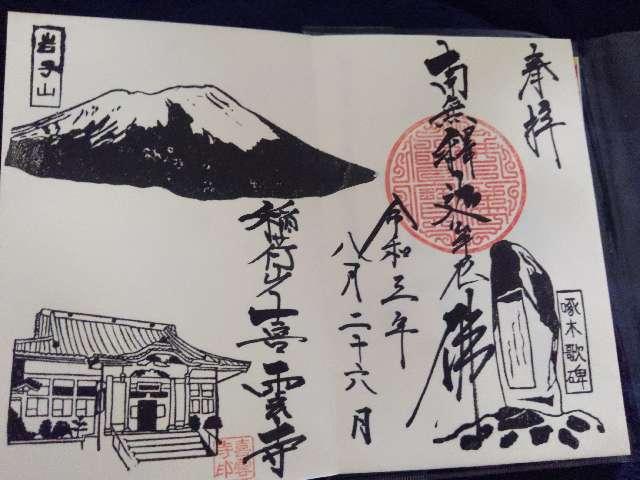 奉拝
南無釋迦牟尼佛
啄木歌碑
令和三年
八月二十六日
稲荷山喜雲寺
岩手山
喜雲
寺印